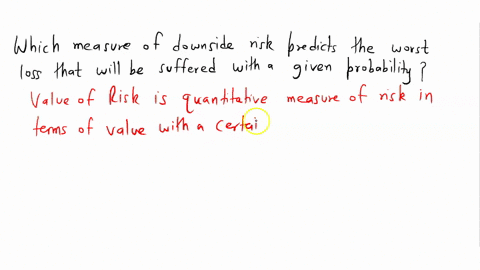 Which measure of downside risk predicts the worst
loss that will be suffered with a given probability?
Value of Risk is quantitative measure of risk in
terms of value with a certai